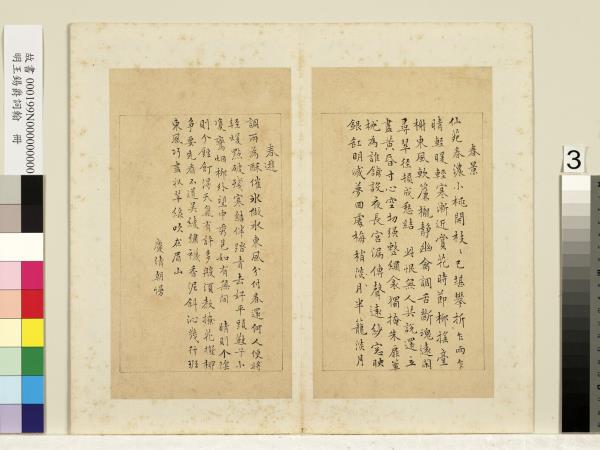 春景
仙苑春濃小桃開枝〻已堪攀折乍雨乍
晴輕暖輕寒漸近賞花時節柳搖臺
榭東風軟簾櫳靜幽禽調舌斷魂遠閒
尋翠徑頓成愁結 此恨無人共說還立
盡黃昏寸心空切強整繡衾獨掩朱扉簟
枕為誰鋪設夜長宮漏傳聲遠紗窓映
銀缸明滅夢回處梅稍淡月半籠淡月
春遊
調雨為酥催氷做水東風分付春還何人便將
輕煖點破殘寒結伴踏青去好平頭鞋子小
雙鸞烟柳外望中秀色如有無間 晴則个陰
則个餖飣得天氣有許多般須教撩花撥柳
爭要先看不道吳綾繡襪香泥斜沁幾行斑
東風巧盡收翠綠吹在眉山
慶清朝慢
故書 000199N000000000
明王錫爵詞翰 冊
3